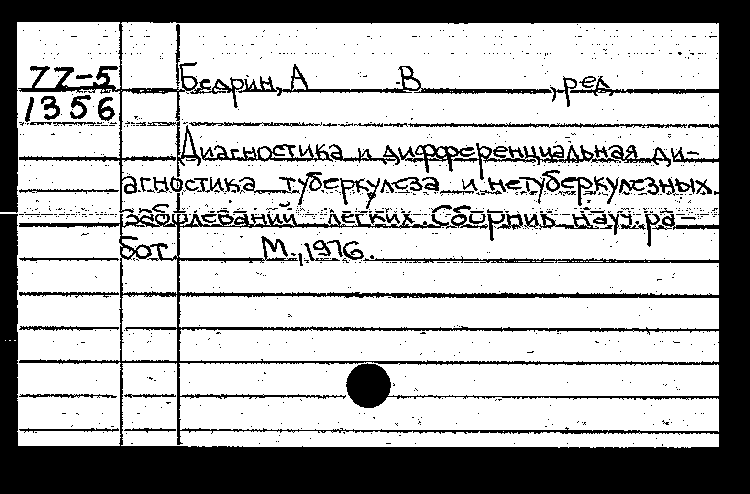 77-5 Бедрин, А В , ред
1356
Диагностика и дифференциальная ди-
агностика туберкулеза и нетуберкулезных
заболеваний легких. Сборник науч. ра-
бот. М., 1976.